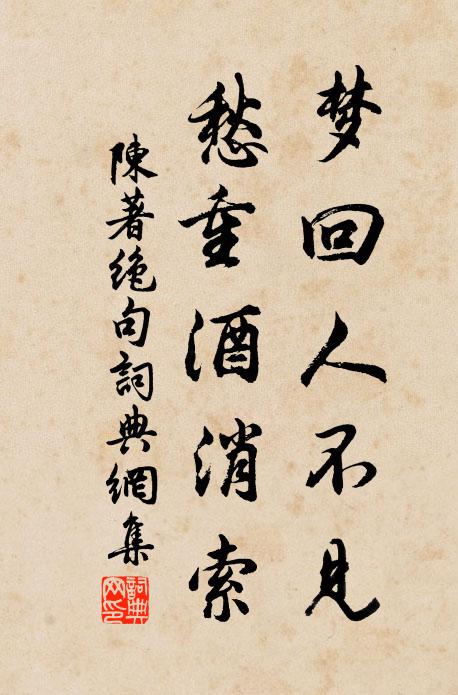 梦回人不见
愁重酒消索
陳著绝句詞典網集
詞典
网印